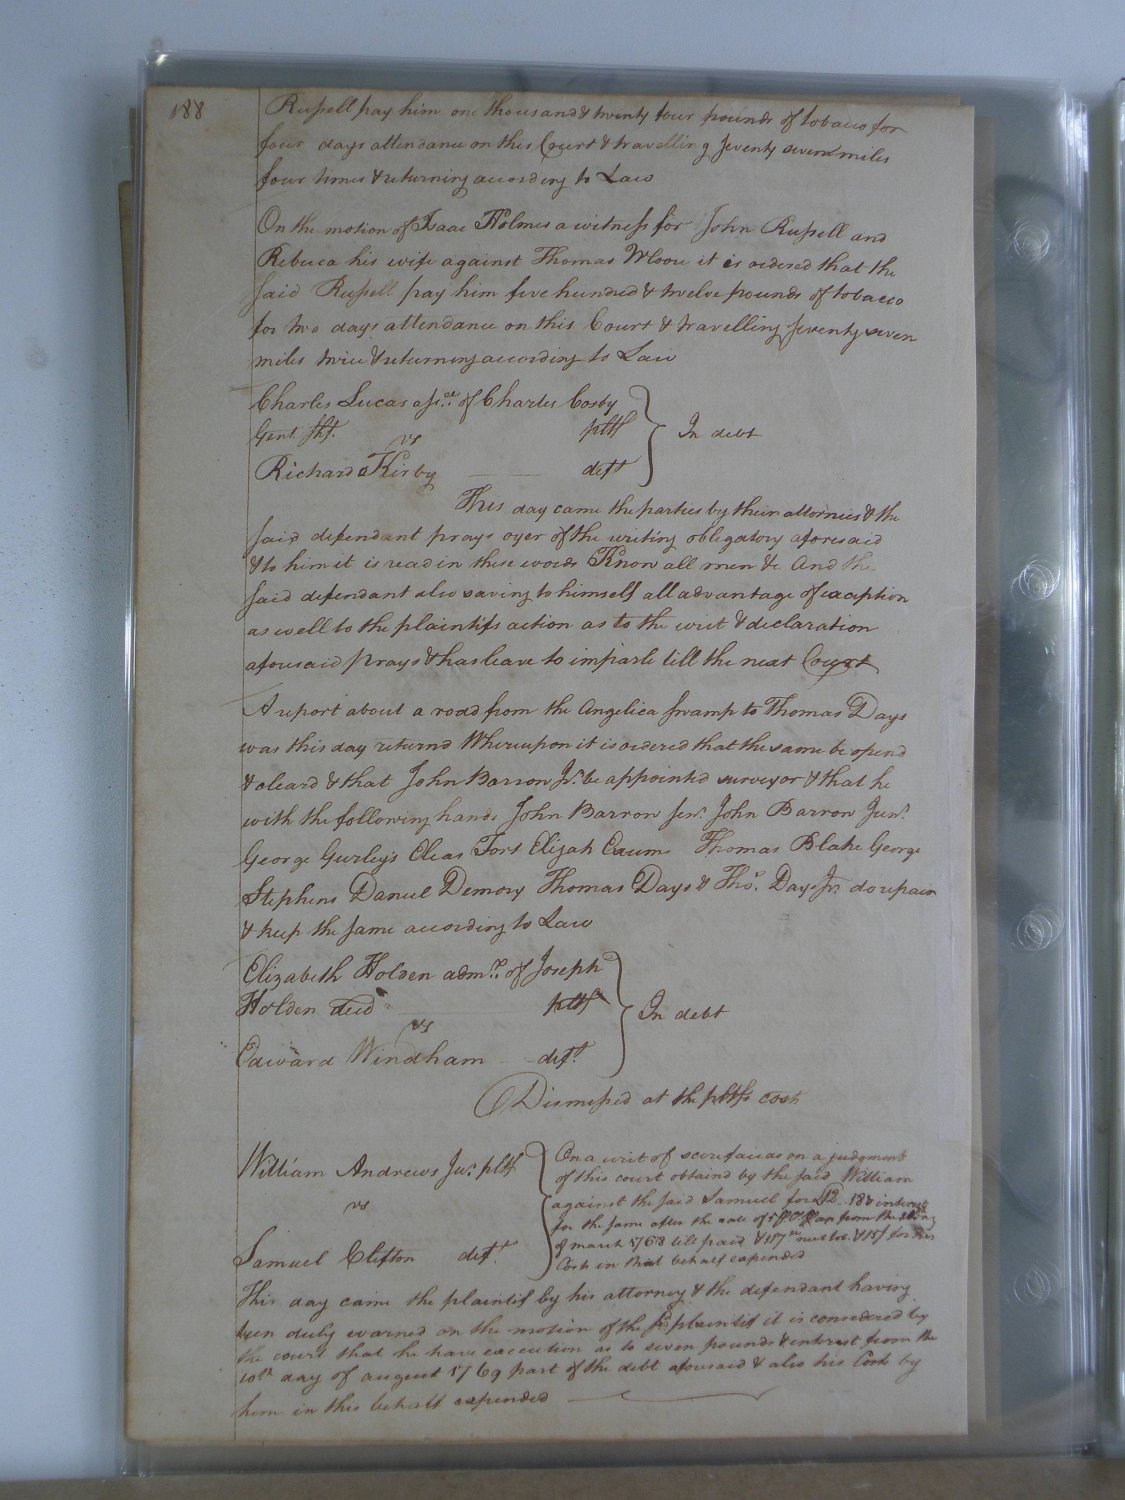 188
Russell pay him one thousand & twenty four pounds of tobacco for
four days attendance on this Court & travelling seventy seven miles
four times & returning according to Law
On the motion of Isaac Holmes a witness for John Russell and
Rebecca his wife against Thomas Moore it is ordered that the
said Russell pay him five hundred & twelve pounds of tobacco
for two days attendance on this Court & travelling seventy seven
miles twice & returning according to Law
Charles Lucas assee. of Charles Cosby
Gent. plt
vs
Richard Kirby deft
In debt
This day came the parties by their attornies & the
said defendant prays oyer of the writing obligatory aforesaid
& to him it is read in these words Know all men &c And the
said defendant also saving to himself all advantage of exception
as well to the plaintifs action as to the writ & declaration
aforesaid prays & has leave to imparle till the next Court
A report about a road from the Angelica swamp to Thomas Days
was this day returnd Whereupon it is ordered that the same be opend
& cleard & that John Barron Jr. be appointed surveyor & that he
with the following hands John Barrow Senr. John Barrow Junr.
George Gurley's Cleas Fort Elijah Exums Thomas Blake George
Stephens Daniel Demory Thomas Days & Thos. Days Jr. do repair
& keep the same according to Law
Elizabeth Holden admx. of Joseph
Holden decd plt
vs
Edward Windham deft.
In debt
Dismissed at the pltfs cost
William Andrews Jur. plt
vs
Samuel Clifton deft.
On a writ of scirefacias on a judgment
of this court obtaind by the said William
against the said Samuel for £12.. 18s interest
for the same after the rate of 5 from the
of march 1768 till paid & 117 nett tob. & 15/ for his
Cost in that behalf expended
This day came the plaintif by his attorney & the defendant having
been duly warned on the motion of the sd plaintif it is considered by
the court that he have execution as to seven pounds & interest from the
10th day of august 1769 part of the debt aforesaid & also his Costs by
him in this behalf expended